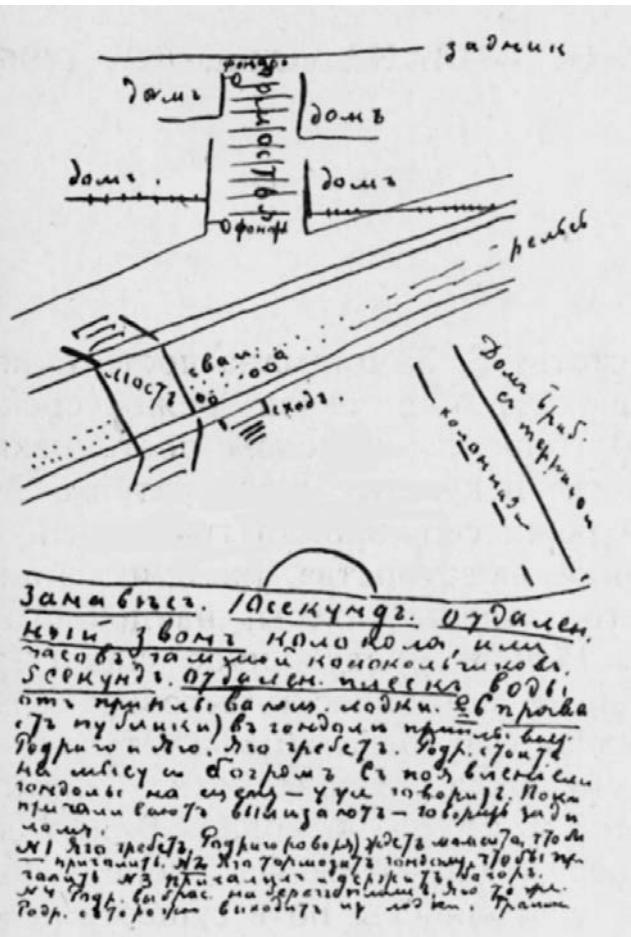 задник
фонарь
домъ
домъ
мостъ
домъ
домъ
фонарь
рельсъ
сваи
мостъ
сходъ
Домъ Браб.
съ террасой
колоннада
Занавѣсъ. 10 секундъ. Отдален.
ный звонъ колокола, или
часовъ, колокольчиковъ.
5 секундъ. Отдален. плескъ воды
отъ приплывающ. лодки. Справа
(отъ публики) въ гондолѣ
Родриго и Яго. Яго гребетъ. Родр. стоитъ
на мысу съ багромъ. Съ появленіемъ
гондолы на сцену — ужъ говорятъ. Пока
причаливаютъ вылизаютъ — говоритъ
№1 Яго гребетъ, Родриго ждетъ момента, чтобы
причалить. №2 Яго тормозитъ гондолу, чтобы при
чалить №3 причалилъ и держитъ багоръ.
№4 Родр. выбрас. на берегъ Яго то же.
Родр. осторожно выходитъ изъ лодки.